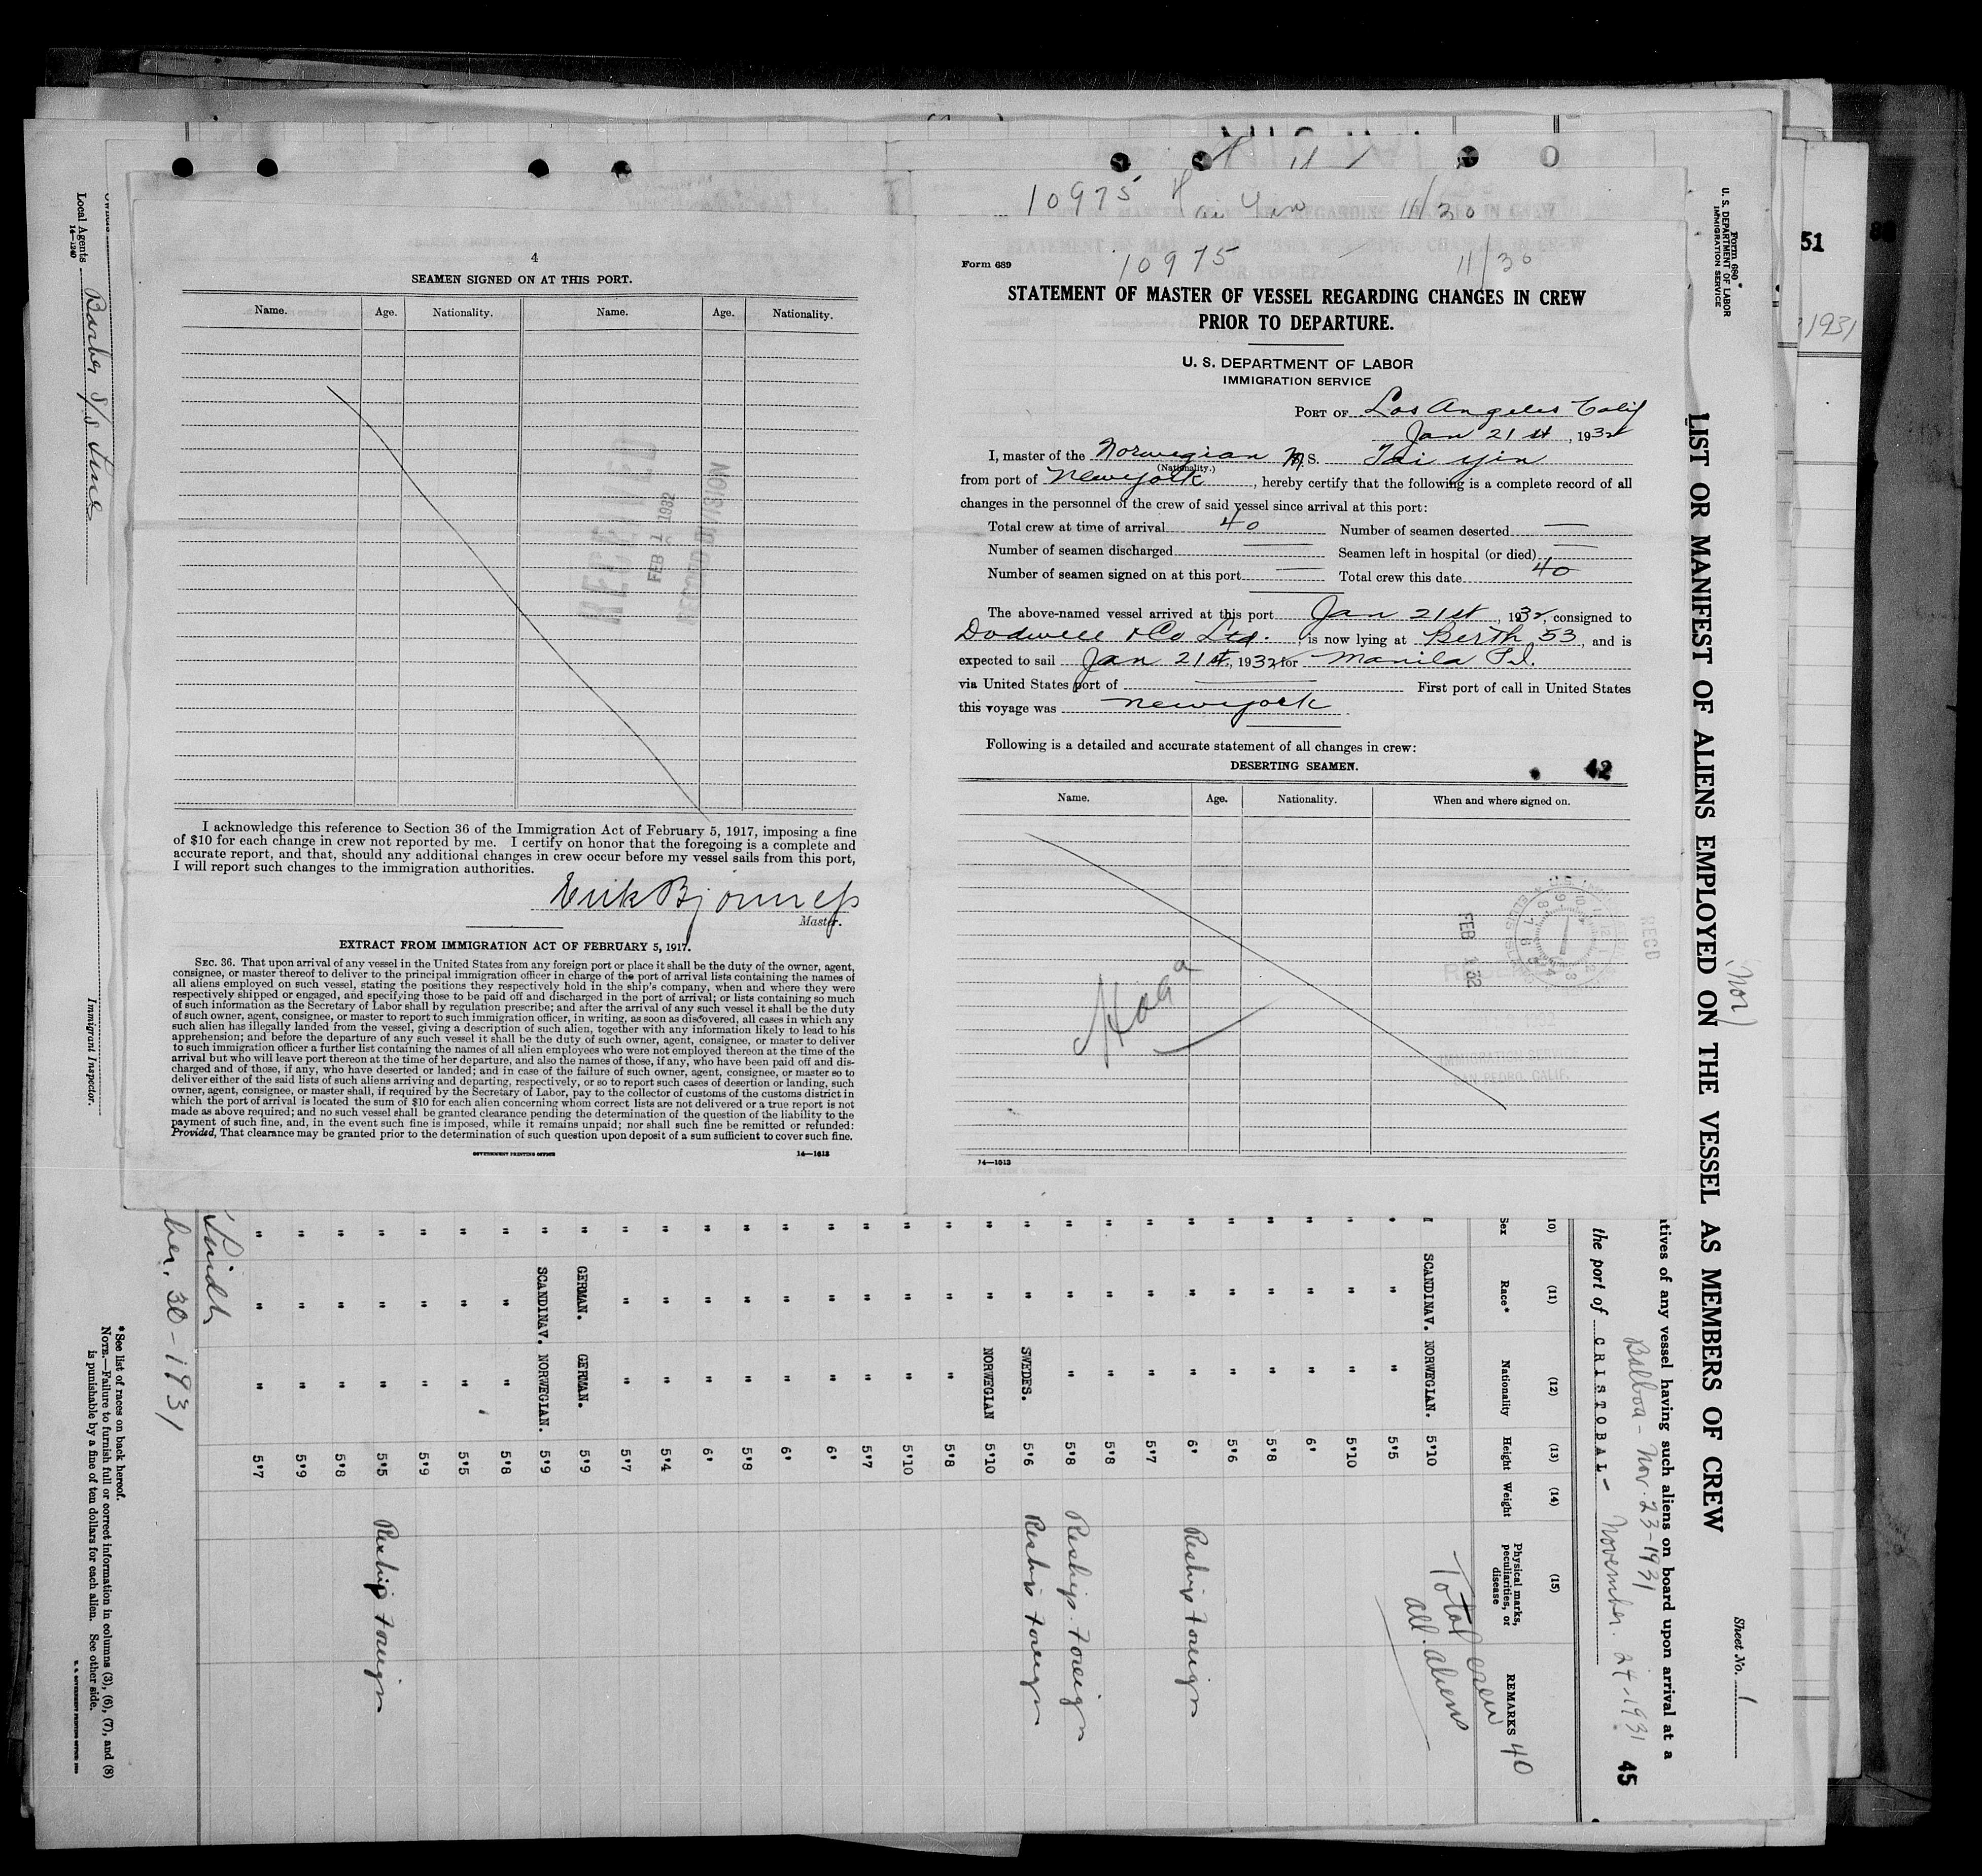 10975 Hai Yin 11/30
4
SEAMEN SIGNED ON AT THIS PORT.
Name. Age. Nationality. Name. Age. Nationality.
RECEIVED
FEB 1 1932
RECORD DIVISION
I acknowledge this reference to Section 36 of the Immigration Act of February 5, 1917, imposing a fine
of $10 for each change in crew not reported by me. I certify on honor that the foregoing is a complete and
accurate report, and that, should any additional changes in crew occur before my vessel sails from this port,
I will report such changes to the immigration authorities.
Erik Bjonness
Master.
EXTRACT FROM IMMIGRATION ACT OF FEBRUARY 5, 1917.
SEC. 36. That upon arrival of any vessel in the United States from any foreign port or place it shall be the duty of the owner, agent,
consignee, or master thereof to deliver to the principal immigration officer in charge of the port of arrival lists containing the names of
all aliens employed on such vessel, stating the positions they respectively hold in the ship's company, when and where they were
respectively shipped or engaged, and specifying those to be paid off and discharged in the port of arrival; or lists containing so much
of such information as the Secretary of Labor shall by regulation prescribe; and after the arrival of any such vessel it shall be the duty
of such owner, agent, consignee, or master to report to such immigration officer, in writing, as soon as discovered, all cases in which any
such alien has illegally landed from the vessel, giving a description of such alien, together with any information likely to lead to his
apprehension; and before the departure of any such vessel it shall be the duty of such owner, agent, consignee, or master to deliver
to such immigration officer a further list containing the names of all alien employees who were not employed thereon at the time of the
arrival but who will leave port thereon at the time of her departure, and also the names of those, if any, who have been paid off and dis-
charged and of those, if any, who have deserted or landed; and in case of the failure of such owner, agent, consignee, or master so to
deliver either of the said lists of such aliens arriving and departing, respectively, or so to report such cases of desertion or landing, such
owner, agent, consignee, or master shall, if required by the Secretary of Labor, pay to the collector of customs of the customs district in
which the port of arrival is located the sum of $10 for each alien concerning whom correct lists are not delivered or a true report is not
made as above required; and no such vessel shall be granted clearance pending the determination of the question of the liability to the
payment of such fine, and, in the event such fine is imposed, while it remains unpaid; nor shall such fine be remitted or refunded:
Provided, That clearance may be granted prior to the determination of such question upon deposit of a sum sufficient to cover such fine.
GOVERNMENT PRINTING OFFICE 14—1613
10975 11/30
Form 689
STATEMENT OF MASTER OF VESSEL REGARDING CHANGES IN CREW
PRIOR TO DEPARTURE.
U. S. DEPARTMENT OF LABOR
IMMIGRATION SERVICE
PORT OF Los Angeles Calif
Jan 21st, 1932
I, master of the Norwegian M.S. Tai Yin
(Nationality.)
from port of Newyork, hereby certify that the following is a complete record of all
changes in the personnel of the crew of said vessel since arrival at this port:
Total crew at time of arrival 40 Number of seamen deserted —
Number of seamen discharged — Seamen left in hospital (or died) —
Number of seamen signed on at this port — Total crew this date 40
The above-named vessel arrived at this port Jan 21st, 1932, consigned to
Dodwell & Co Ltd., is now lying at Berth 53, and is
expected to sail Jan 21st, 1932 for Manila P.I.
via United States port of — First port of call in United States
this voyage was Newyork
Following is a detailed and accurate statement of all changes in crew:
DESERTING SEAMEN. 42
Name. Age. Nationality. When and where signed on.
REC'D
FEB 1 32
IMMIGRATION SERVICE
SAN PEDRO, CALIF.
14—1613
Form 680
U. S. DEPARTMENT OF LABOR
IMMIGRATION SERVICE
LIST OR MANIFEST OF ALIENS EMPLOYED ON THE VESSEL AS MEMBERS OF CREW
(Nor)
Sheet No. 1
tives of any vessel having such aliens on board upon arrival at a
Balboa - Nov. 23-1931
the port of CRISTOBAL - November. 24-1931
45
(10) (11) (12) (13) (14) (15)
Sex Race* Nationality Height Weight Physical marks, peculiarities, or disease REMARKS
Total crew 40
all aliens
" SCANDINAV. NORWEGIAN. 5'10
" " " 5'5
" " " 5'10
" " " 6'
" " " 5'8
" " " 5'6
" " " 6' Reship Foreign
" " " 5'7
" " " 5'8
" " " 5'8 Reship Foreign
" " SWEDES. 5'6 Reship Foreign
" " NORWEGIAN 5'10
" " " 5'8
" " " 5'10
" " " 5'7
" " " 6'
" " " 6'
" " " 5'8
" " " 6'
" " " 5'4
" " " 5'7
" GERMAN. GERMAN. 5'9
" SCANDINAV. NORWEGIAN. 5'9
" " " 5'8
" " " 5'5
" " " 5'9
" " " 5'5 Reship Foreign
" " " 5'8
" " " 5'9
" " " 5'7
ber. 30-1931
*See list of races on back hereof.
NOTE.—Failure to furnish full or correct information in columns (3), (6), (7), and (8)
is punishable by a fine of ten dollars for each alien. See other side.
Immigrant Inspector.
Local Agents Barber S/S Line
14—1240
51
1931